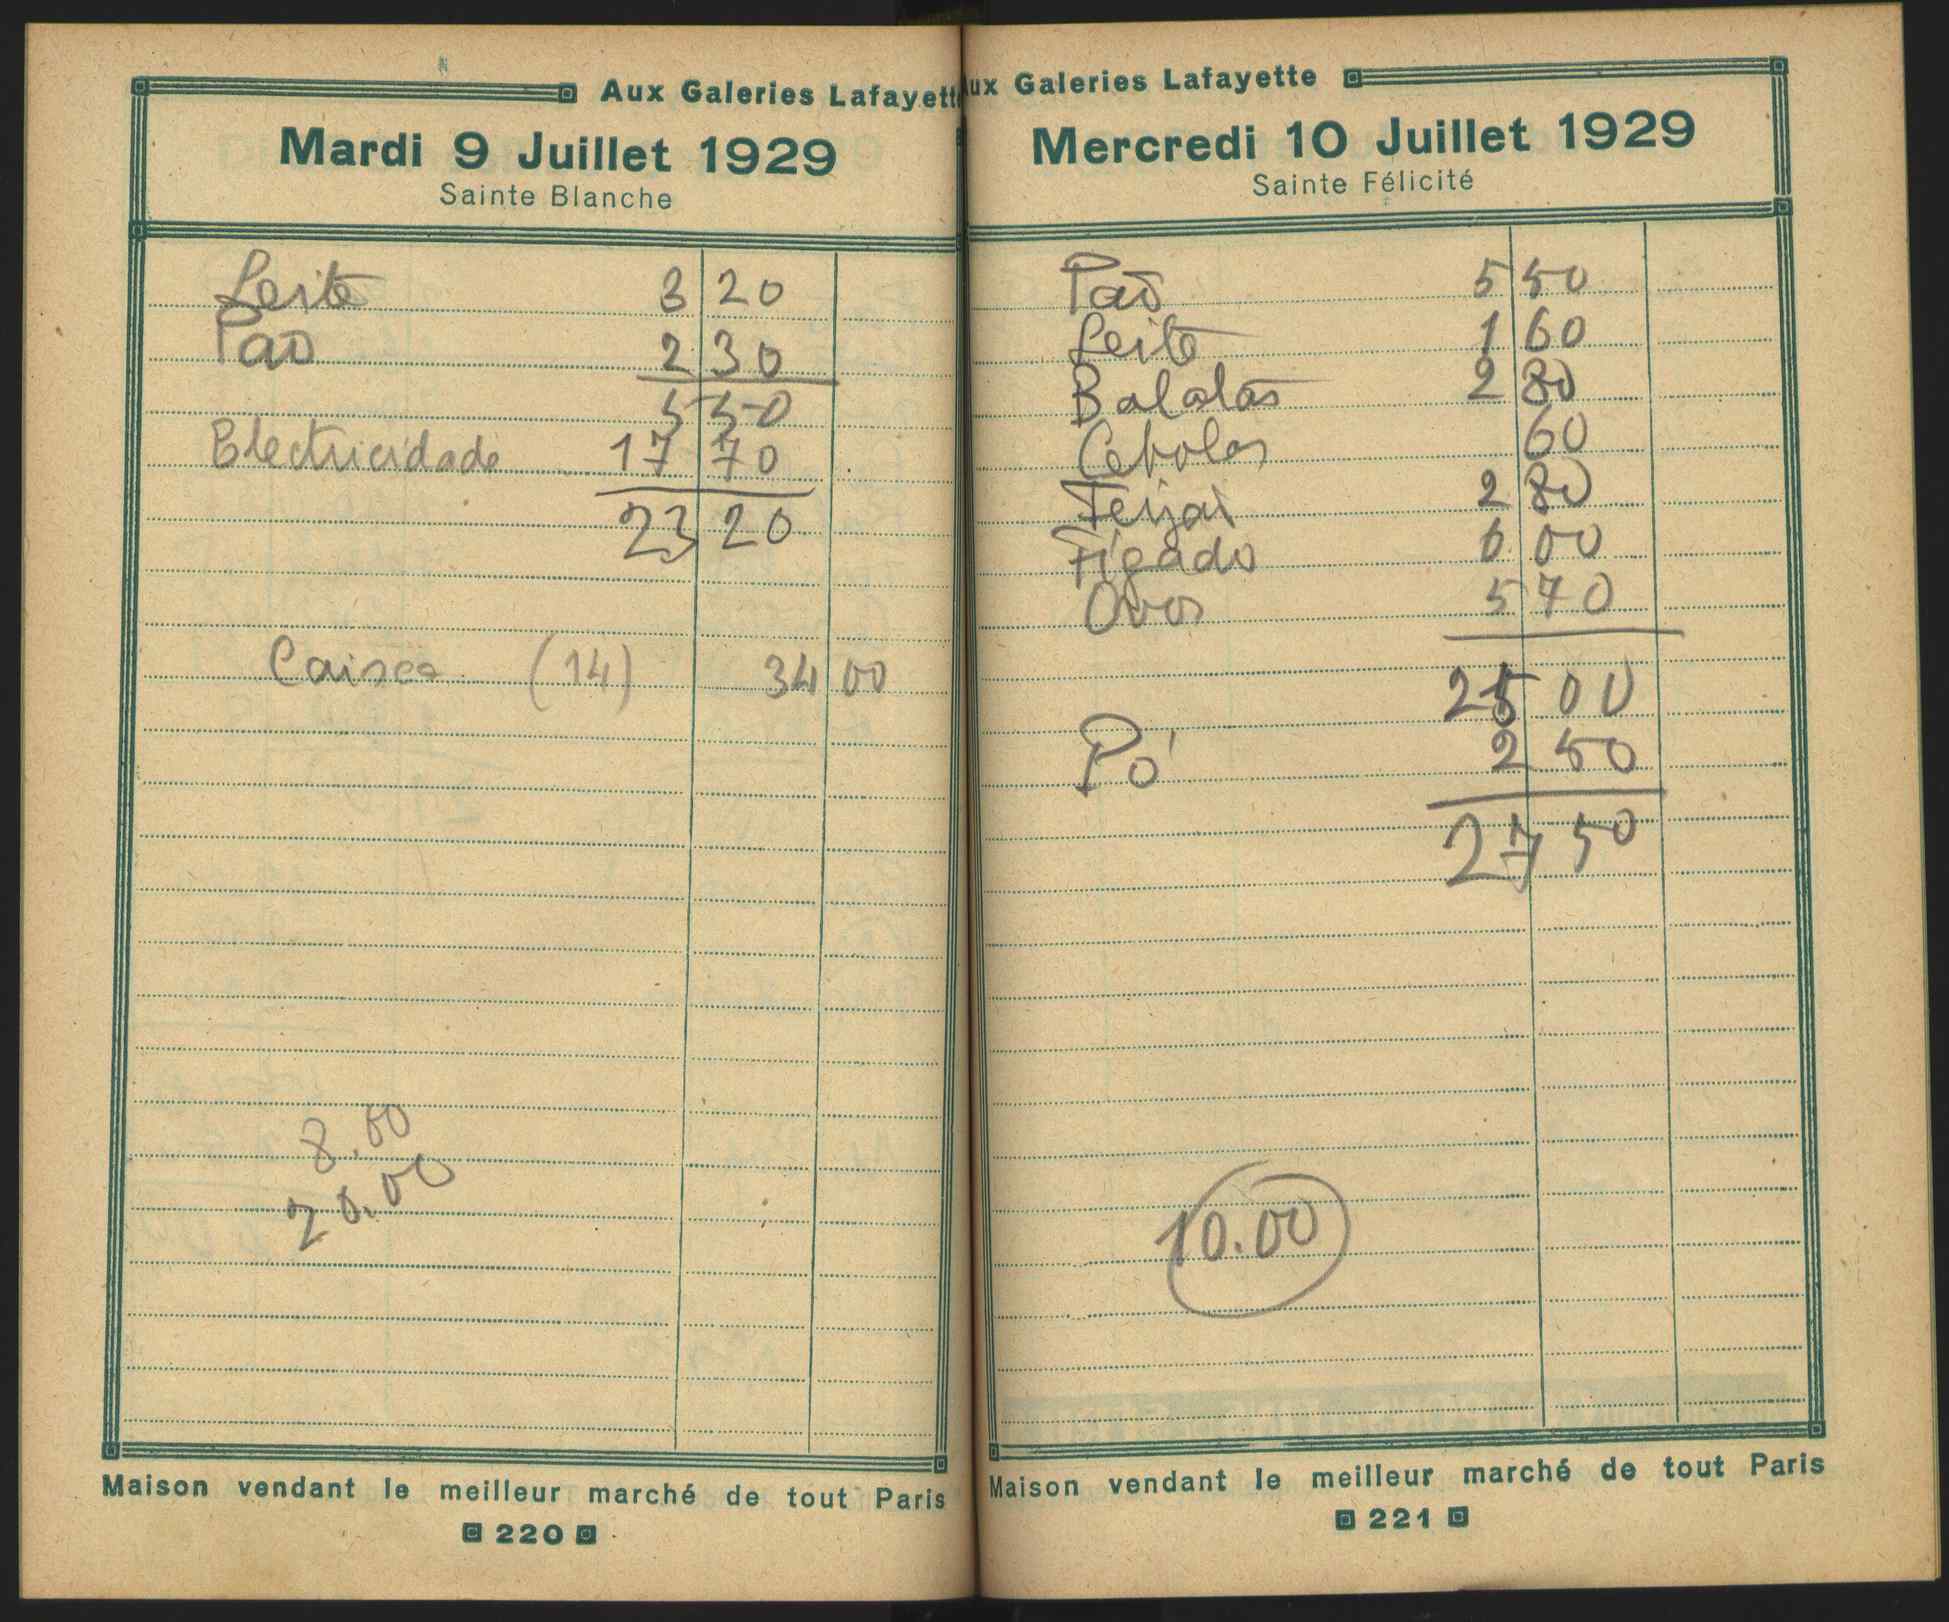 Aux Galeries Lafayette
Mardi 9 Juillet 1929
Sainte Blanche
Leite 3 20
Pão 2 30
5 50
Electricidade 17 70
23 20
Caisea (14) 34 00
8.00
20.00
Maison vendant le meilleur marché de tout Paris
220
Aux Galeries Lafayette
Mercredi 10 Juillet 1929
Sainte Félicité
Pão 5 50
Leite 1 60
Batatas 2 80
Cebolas 60
Feijão 2 80
Figado 6 00
Ovos 5 70
25 00
Pó 2 50
27 50
10.00
Maison vendant le meilleur marché de tout Paris
221